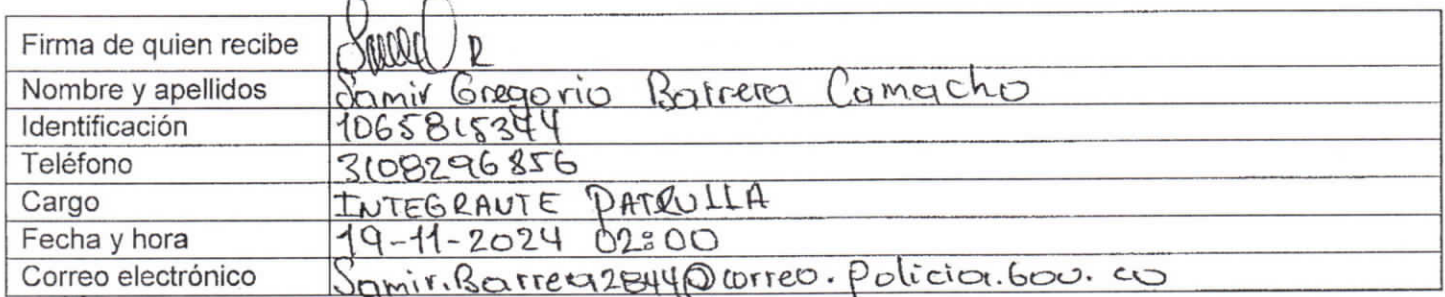 Firma de quien recibe
Nombre y apellidos Samir Gregorio Barrera Camacho
Identificación 1065815344
Teléfono 3108296856
Cargo INTEGRANTE PATRULLA
Fecha y hora 19-11-2024 02:00
Correo electrónico Samir.Barrera2844@correo.policia.gov.co